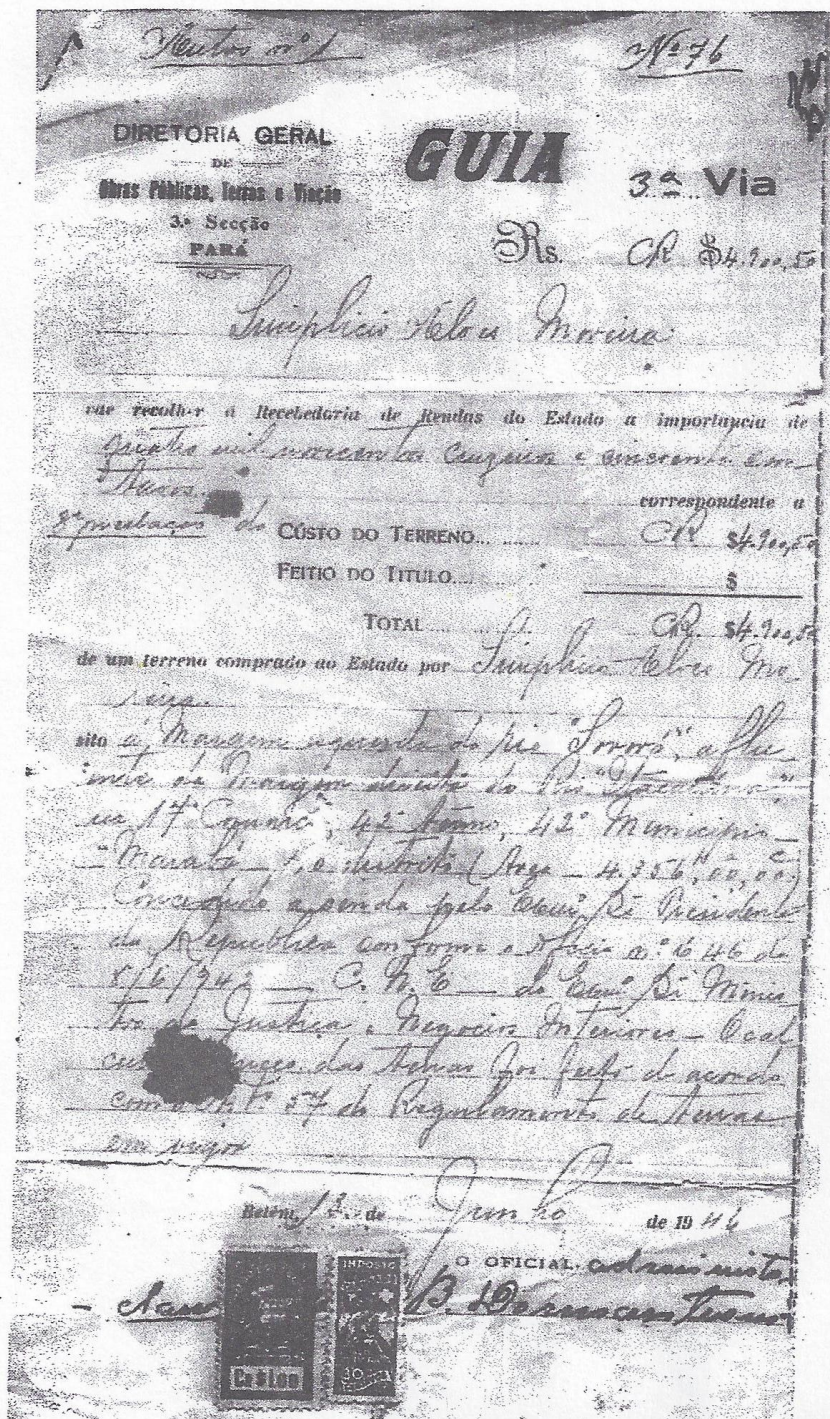 Autos nº 1 Nº 76
DIRETORIA GERAL
DE
Obras Públicas, Terras e Viação
3.ª Secção
PARÁ
GUIA
3ª Via
Rs. CR $4.900,50
Simplicio Alves Moreira
vae recolher á Recebedoria de Rendas do Estado a importancia de
quatro mil novecentos cruzeiros e cincoenta cen-
tavos
correspondente a
prestação do CUSTO DO TERRENO CR $4.900,50
FEITIO DO TITULO $
TOTAL CR $4.900,50
de um terreno comprado ao Estado por Simplicio Alves Mo
reira
sito á Margem esquerda do rio "Sororó", aflu
ente da margem direita do Rio "Itacaiúna"
na 17ª Comarca, 42º Termo, 42º Municipio _
_ Marabá _ 1,o distrito (Area _ 4.356,00,00)
Concedida a venda pelo Exmº Sr Presidente
da Republica conforme o Oficio nº 646 de
_ C. N. E _ do Exmº Sr Minis
tro da Justiça e Negocios Interiores _ O cal
das terras foi feito de acordo
com o 57 do Regulamento de terras
em vigor
Belém, de Junho de 1946
O OFICIAL administ
B. Dormans